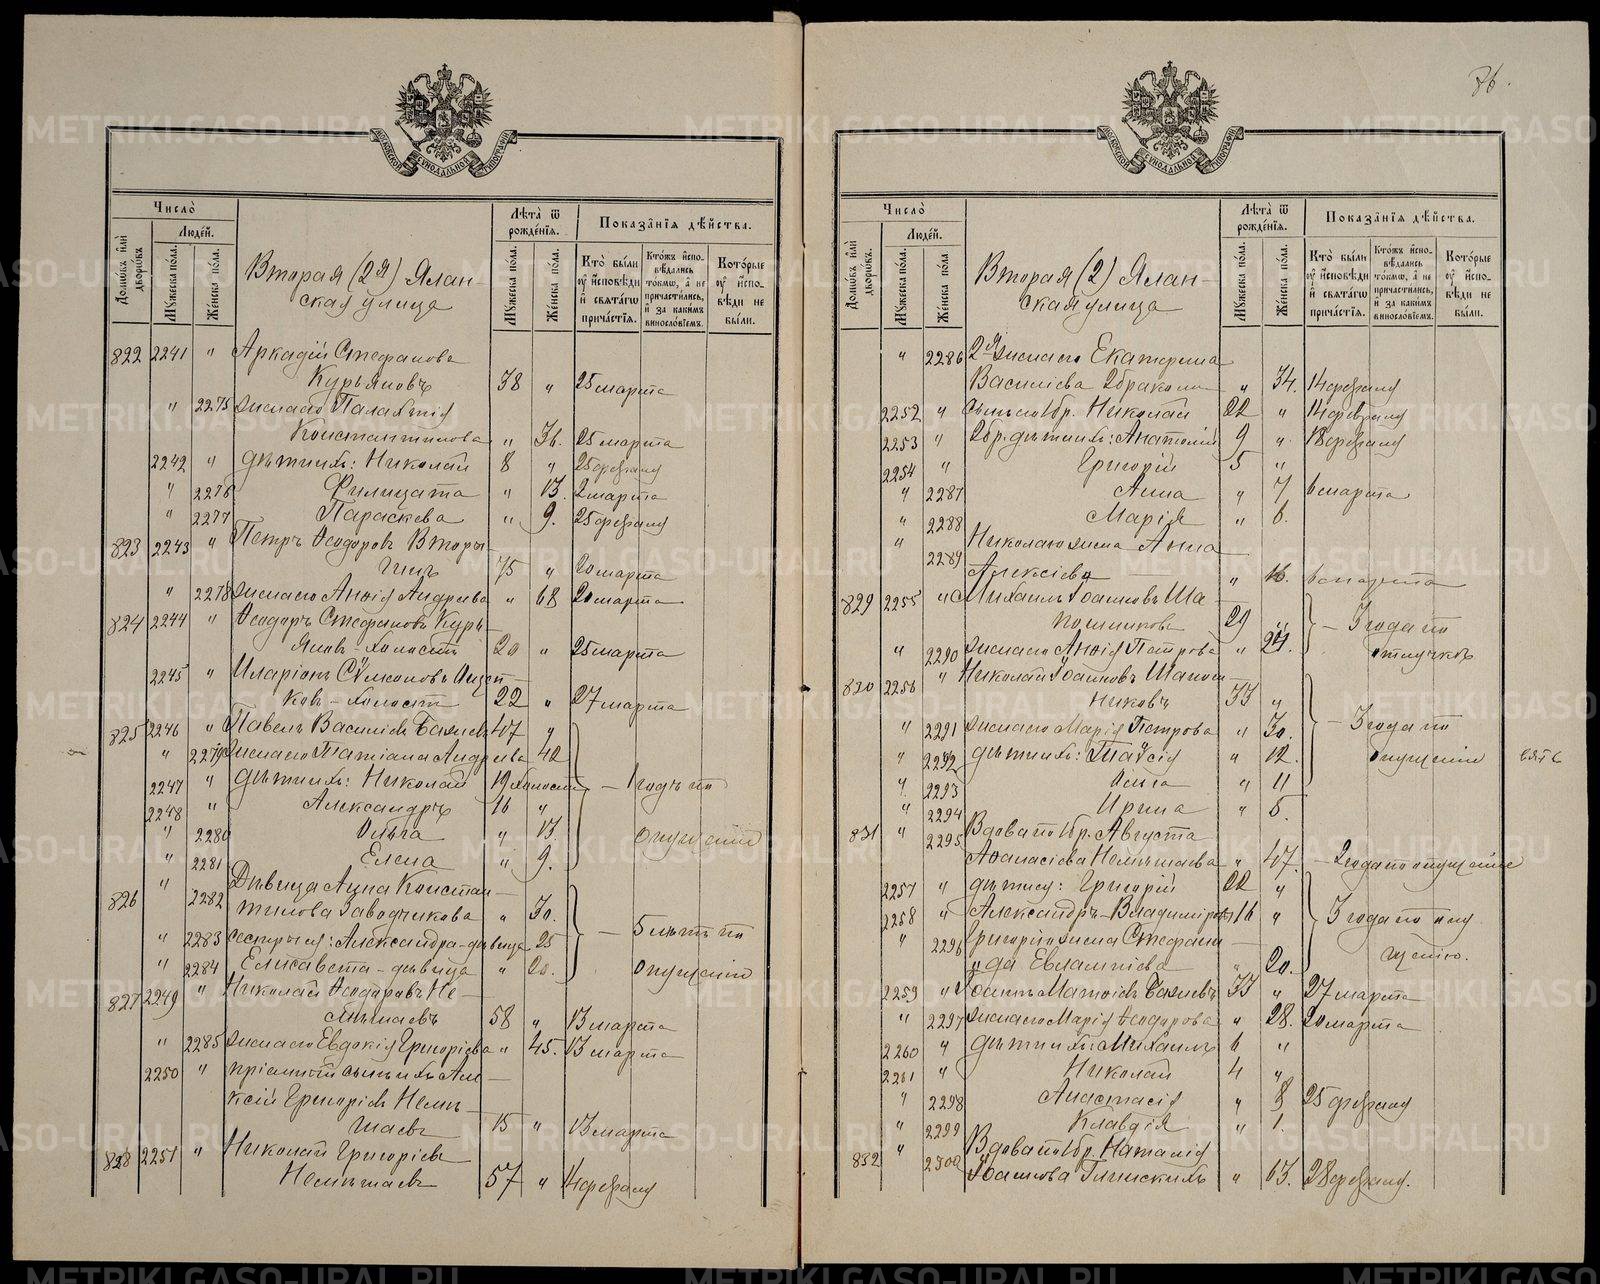 76.
МОСКОВСКОЙ СѴНОДАЛЬНОЙ ТИПОГРАФІИ
Число̀
Людей.
Домѡвъ илѝ дворѡвъ.
Мꙋжеска пола.
Женска пола.
Вторая (2я) Ялан-
ская улица
Лѣта̀ ѿ рожденїѧ.
Мꙋжеска пола.
Женска пола.
Показанїѧ дѣйства.
Кто̀ были оу исповѣди и свѧтагѡ причастїѧ.
Которые оу исповѣди не были.
822 2241 " Аркадій Стефановъ
Курьяновъ 38 " 25 марта
" 2275 жена его
Константинова " 36. 25 марта
2242 " дѣти ихъ: Николай 8 " 25 февраля
" 2276 Филицата " 13. 2 марта
" 2277 Параскева " 9. 25 февраля
823 2243 " Петръ Ѳеодоровъ Вторы-
гинъ 75 " 20 марта
" 2278 жена его Андреева " 68 20 марта
824 2244 " Ѳеодоръ Стефановъ Курь-
яновъ - холостъ 20 " 25 марта
2245 " Иларіонъ
ковъ - холостъ 22 " 27 марта
825 2246 " Павелъ Василіевъ 47 "
" 2279 жена его Татіана Андреева 42
2247 " дѣти ихъ: Николай 19 холостъ — 1 годъ по
2248 " Александръ 16 "
" 2280 Ольга " 13. опущенію
" 2281 Елена " 9.
826 " 2282 Дѣвица Анна Констан-
тинова Заводчикова " 30.
" 2283 сестры ея: Александра - дѣвица 25 — 5 лѣтъ по
" 2284 Елисавета - дѣвица " 20. опущенію
827 2249 " Николай Ѳеодоровъ Не-
мѣшаевъ 58 " 13 марта
" 2285 жена его Евдокія Григоріева " 45. 13 марта
2250 " пріемный сынъ ихъ Але-
ксій Григоріевъ Немѣ-
шаевъ 15 " 13 марта
828 2251 " Николай Григоріевъ
Немѣшаевъ 57 " 14 февраля
МОСКОВСКОЙ СѴНОДАЛЬНОЙ ТИПОГРАФІИ
Число̀
Людей.
Домѡвъ илѝ дворѡвъ.
Мꙋжеска пола.
Женска пола.
Вторая (2) Ялан-
ская улица
Лѣта̀ ѿ рожденїѧ.
Мꙋжеска пола.
Женска пола.
Показанїѧ дѣйства.
Кто̀ были оу исповѣди и свѧтагѡ причастїѧ.
Которые оу исповѣди не были.
" 2286 2я жена его Екатерина
Василіева 2 брака " 34. 14 февраля
2252 " сынъ его 1 бр. Николай 22 " 14 февраля
2253 " 2 бр. дѣти ихъ: Анатолій 9 " 18 февраля
2254 " Григорій 5 "
" 2287 Анна " 7 6 марта
" 2288 Марія " 6.
" 2289 Николаю жена Анна
Алексіева " 6 марта
829 2255 " Михаилъ Іоанновъ Ша-
пошниковъ 29 " — 3 года по
" 2290 жена его Петрова " отлучкѣ
830 2256 " Николай Іоанновъ Шапош-
никовъ 33 "
" 2291 жена его Марія Петрова " 30. — 3 года по
" 2292 дѣти ихъ: Таисія " 12. опущенію
" 2293 Ольга " 11
" 2294 Ирина " 5.
831 " 2295 Вдова по 1 бр. Августа
Аѳанасіева Немѣшаева " 47. — 2 года по опущенію
2257 " дѣти ея: Григорій 22 "
2258 " Александръ - Владиміровъ 16 " 3 года по опу-
" 2296 Григорію жена Стефани-
да Евлампіева " 20. щенію.
2259 " Іоаннъ 33 " 27 марта
" 2297 жена его Марія Ѳеодорова " 28. 20 марта
2260 " дѣти ихъ: Михаилъ 6 "
2261 " Николай 4 "
" 2298 Анастасія " 8 25 февраля
" 2299 Клавдія " 1.
832 " 2300 Вдова по 1 бр. Наталія
Іоаннова " 63. 28 февраля.
METRIKI.GASO-URAL.RU